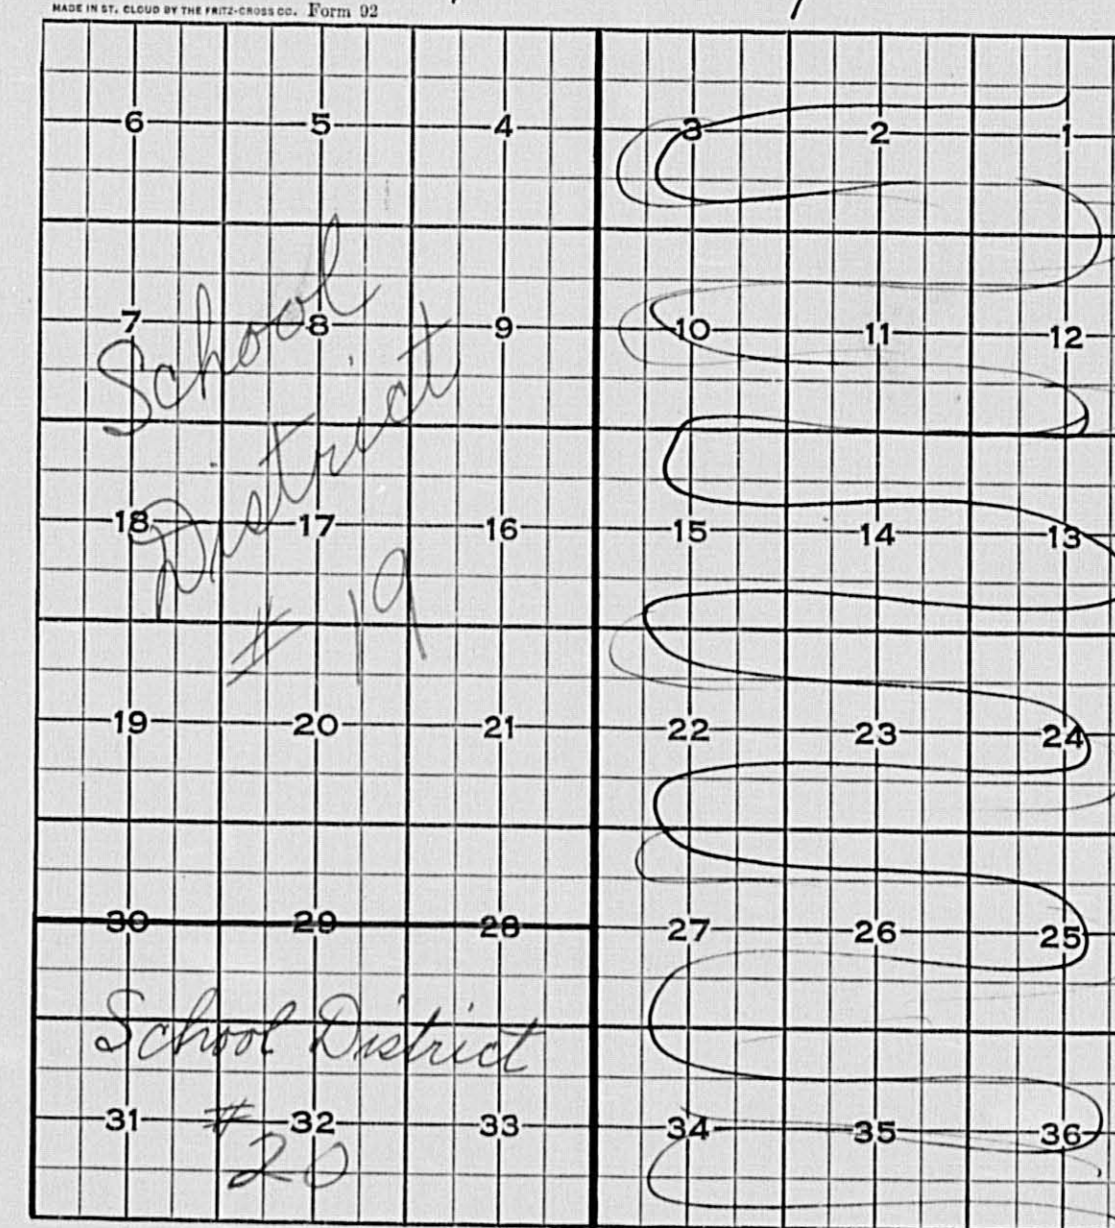 MADE IN ST. CLOUD BY THE FRITZ-CROSS CO. Form 92
6 5 4 3 2 1
School
7 8 9 10 11 12
District
18 17 16 15 14 13
# 19
19 20 21 22 23 24
30 29 28 27 26 25
School District
31 32 33 34 35 36
# 20